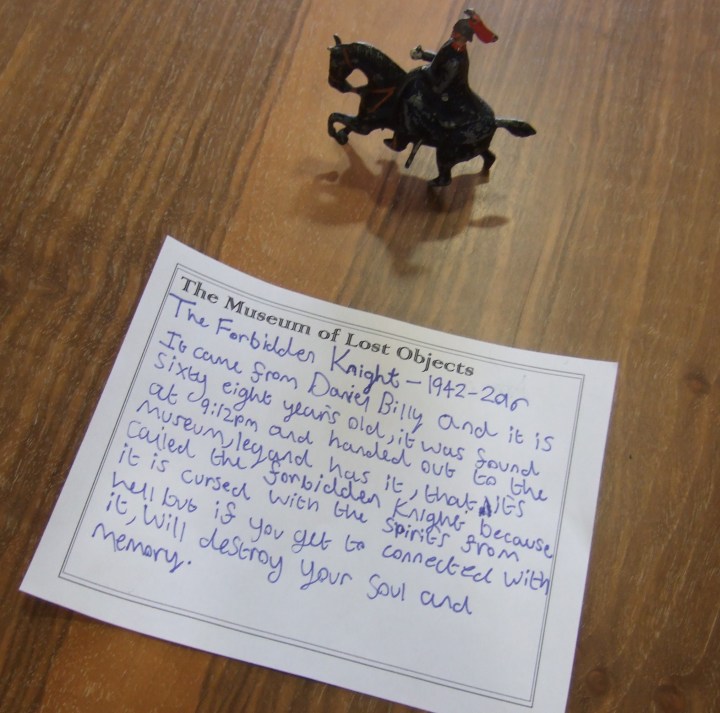 The Museum of Lost Objects
The Forbidden Knight - 1942-
It came from Daniel Billy and it is
sixty eight years old, it was found
at 9:12pm and handed out to the
museum, legand has it, that its
called the forbidden Knight because
it is cursed with the spirits from
hell but if you get to connected with
it, will destroy your soul and
memory.